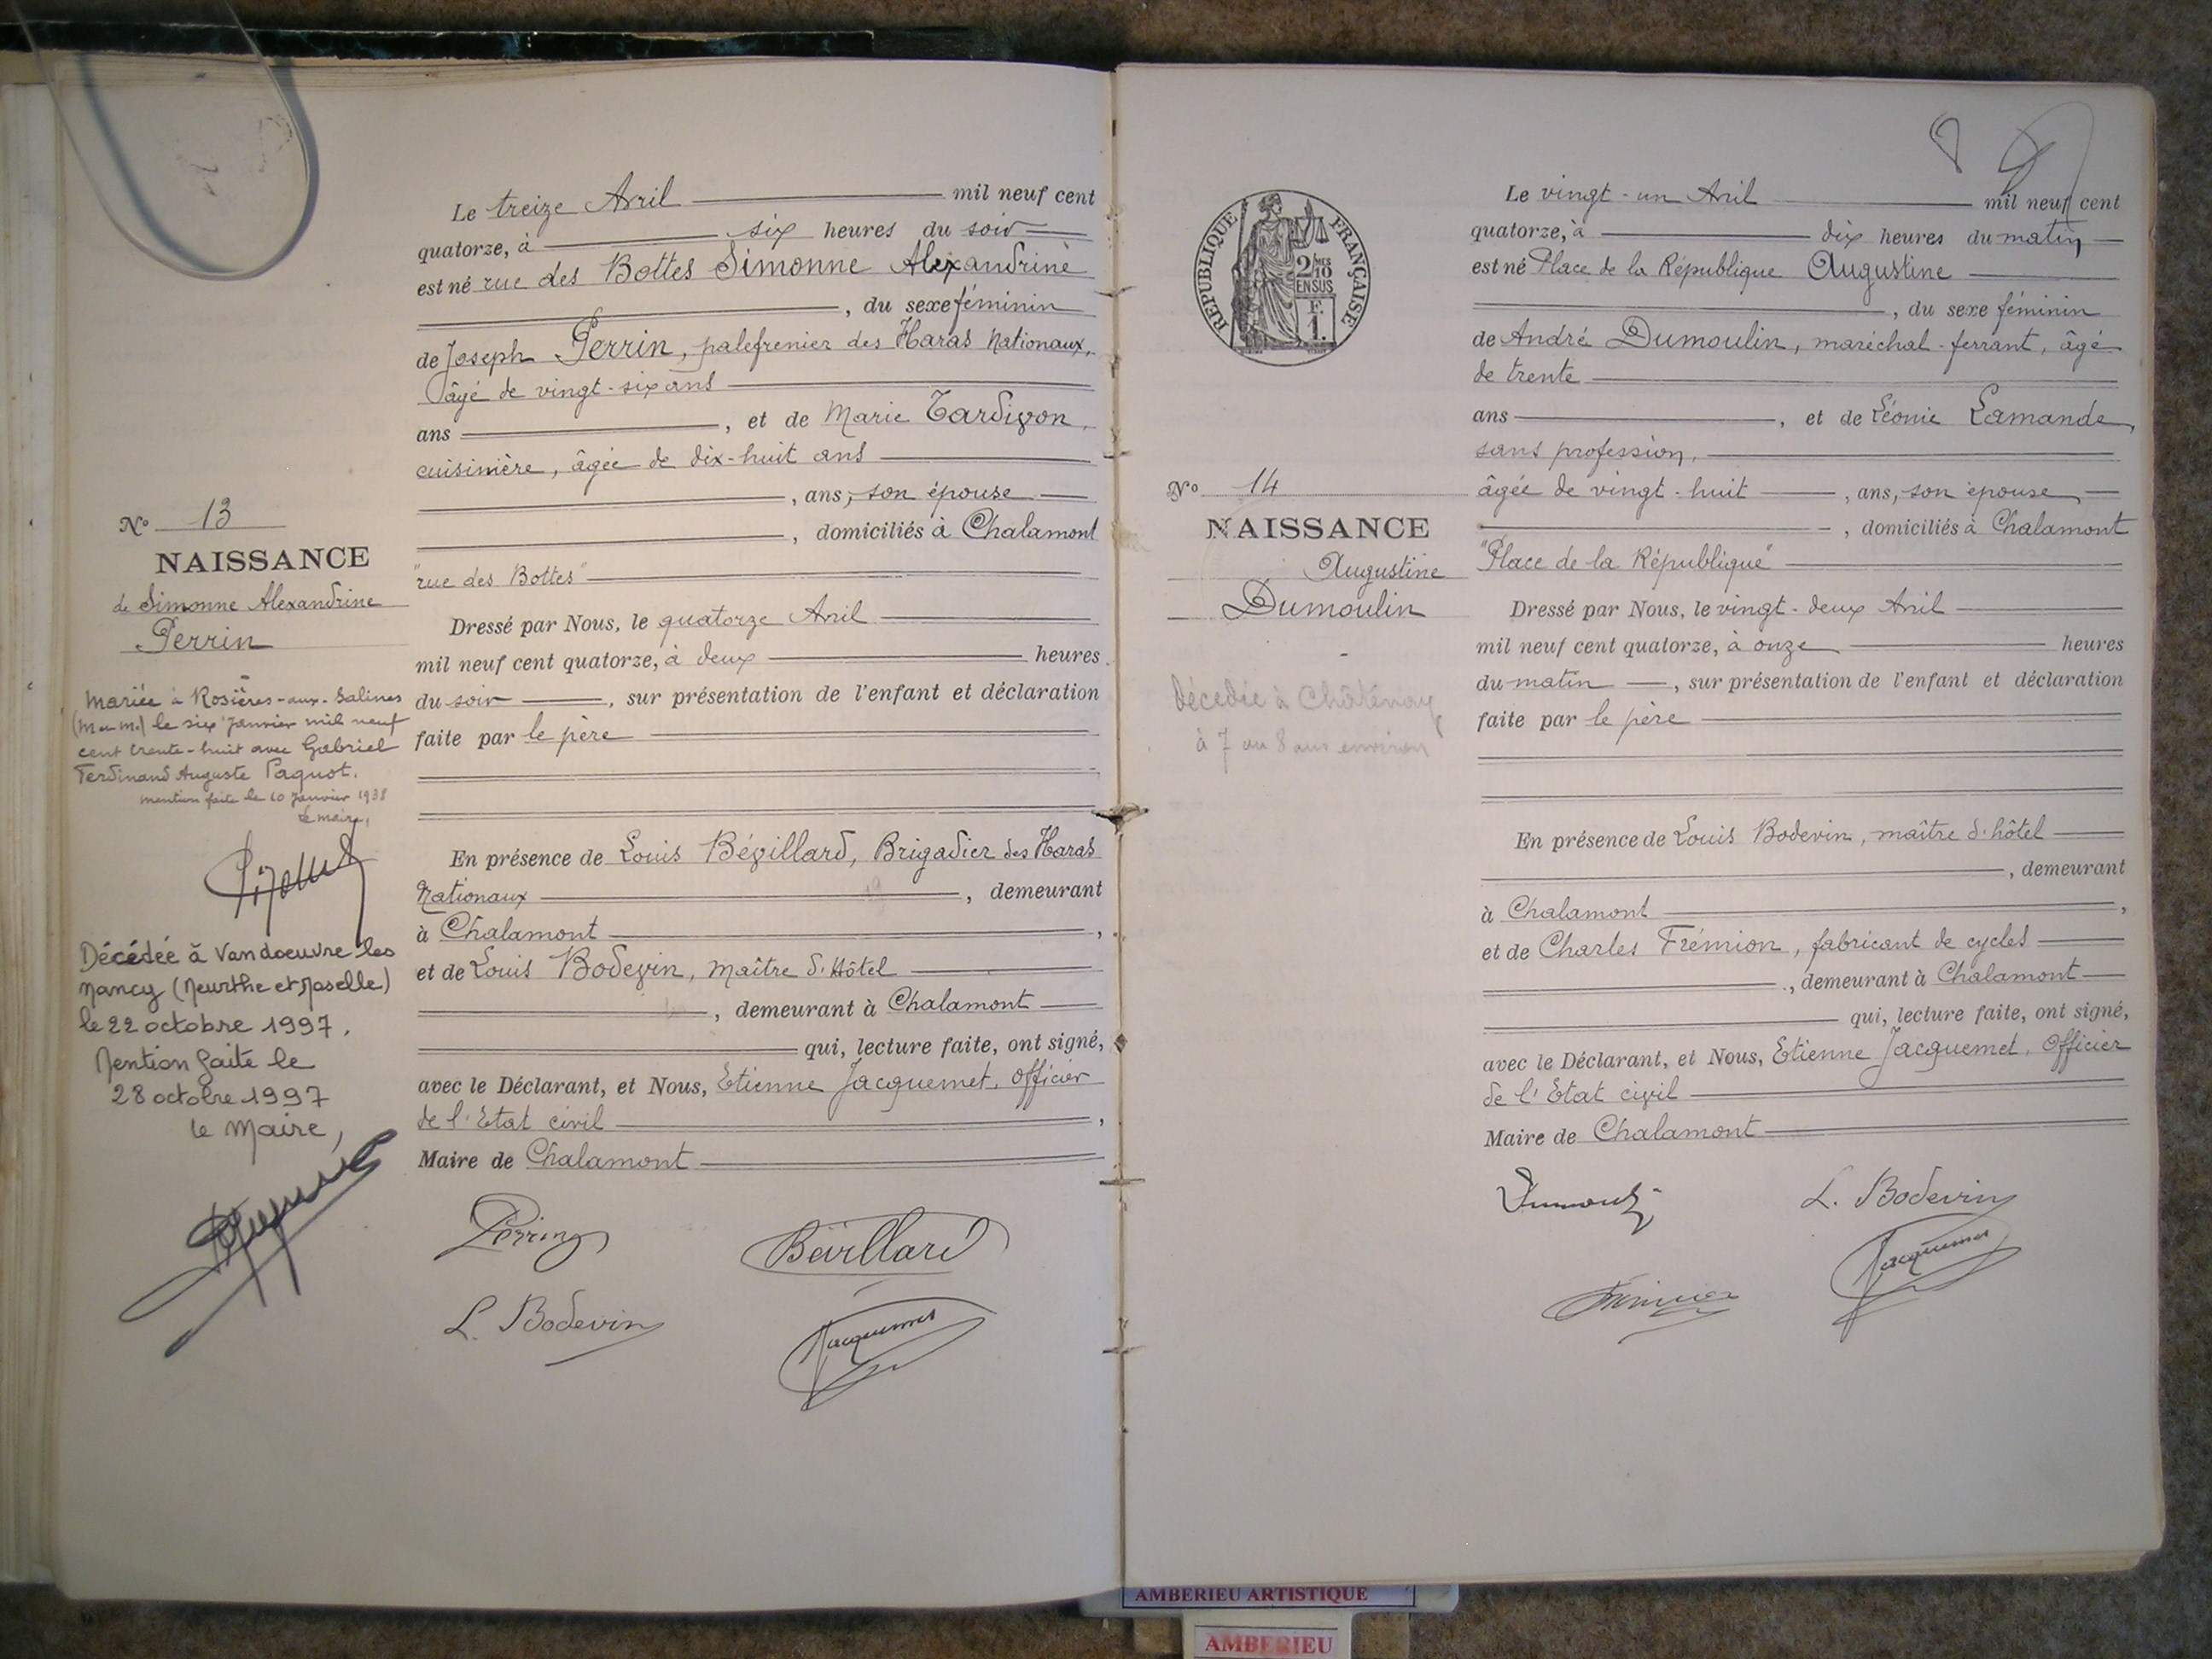 Le treize Avril mil neuf cent
quatorze, à six heures du soir
est né rue des Bottes Simonne Alexandrine
, du sexe féminin
de Joseph Perrin, palefrenier des Haras Nationaux,
âgé de vingt-six ans
ans , et de Marie Tardivon,
cuisinière, âgée de dix-huit ans
, ans, son épouse
, domiciliés à Chalamont
"rue des Bottes"
Dressé par Nous, le quatorze Avril
mil neuf cent quatorze, à deux heures
du soir , sur présentation de l'enfant et déclaration
faite par le père
En présence de Louis Bévillard, Brigadier des Haras
Nationaux , demeurant
à Chalamont ,
et de Louis Bodevin, maître d'Hôtel
, demeurant à Chalamont
qui, lecture faite, ont signé,
avec le Déclarant, et Nous, Etienne Jacquemet, Officier
de l'Etat civil ,
Maire de Chalamont
Perrin
Bévillard
L. Bodevin
Jacquemet
No 13
NAISSANCE
de Simonne Alexandrine
Perrin
Mariée à Rosières-aux-Salines
(M et M.) le six Janvier mil neuf
cent trente-huit avec Gabriel
Ferdinand Auguste Paquot.
mention faite le 10 Janvier 1938
Le maire,
Décédée à Vandoeuvre les
Nancy (Meurthe et Moselle)
le 22 octobre 1997.
Mention faite le
28 octobre 1997
Le Maire,
8
RÉPUBLIQUE FRANÇAISE
2/10 MES
EN SUS
F.
1.
Le vingt-un Avril mil neuf cent
quatorze, à dix heures du matin
est né Place de la République Augustine
, du sexe féminin
de André Dumoulin, maréchal-ferrant, âgé
de trente
ans , et de Léonie Lamande,
sans profession,
âgée de vingt-huit , ans, son épouse,
, domiciliés à Chalamont
"Place de la République"
Dressé par Nous, le vingt-deux Avril
mil neuf cent quatorze, à onze heures
du matin , sur présentation de l'enfant et déclaration
faite par le père
En présence de Louis Bodevin, maître d'hôtel
, demeurant
à Chalamont ,
et de Charles Frémion, fabricant de cycles
, demeurant à Chalamont
qui, lecture faite, ont signé,
avec le Déclarant, et Nous, Etienne Jacquemet, Officier
de l'Etat civil
Maire de Chalamont
Dumoulin
L. Bodevin
Frémion
Jacquemet
No 14
NAISSANCE
Augustine
Dumoulin
Décédée à Châtenay
à 7 ou 8 ans environ
AMBERIEU ARTISTIQUE
AMBERIEU